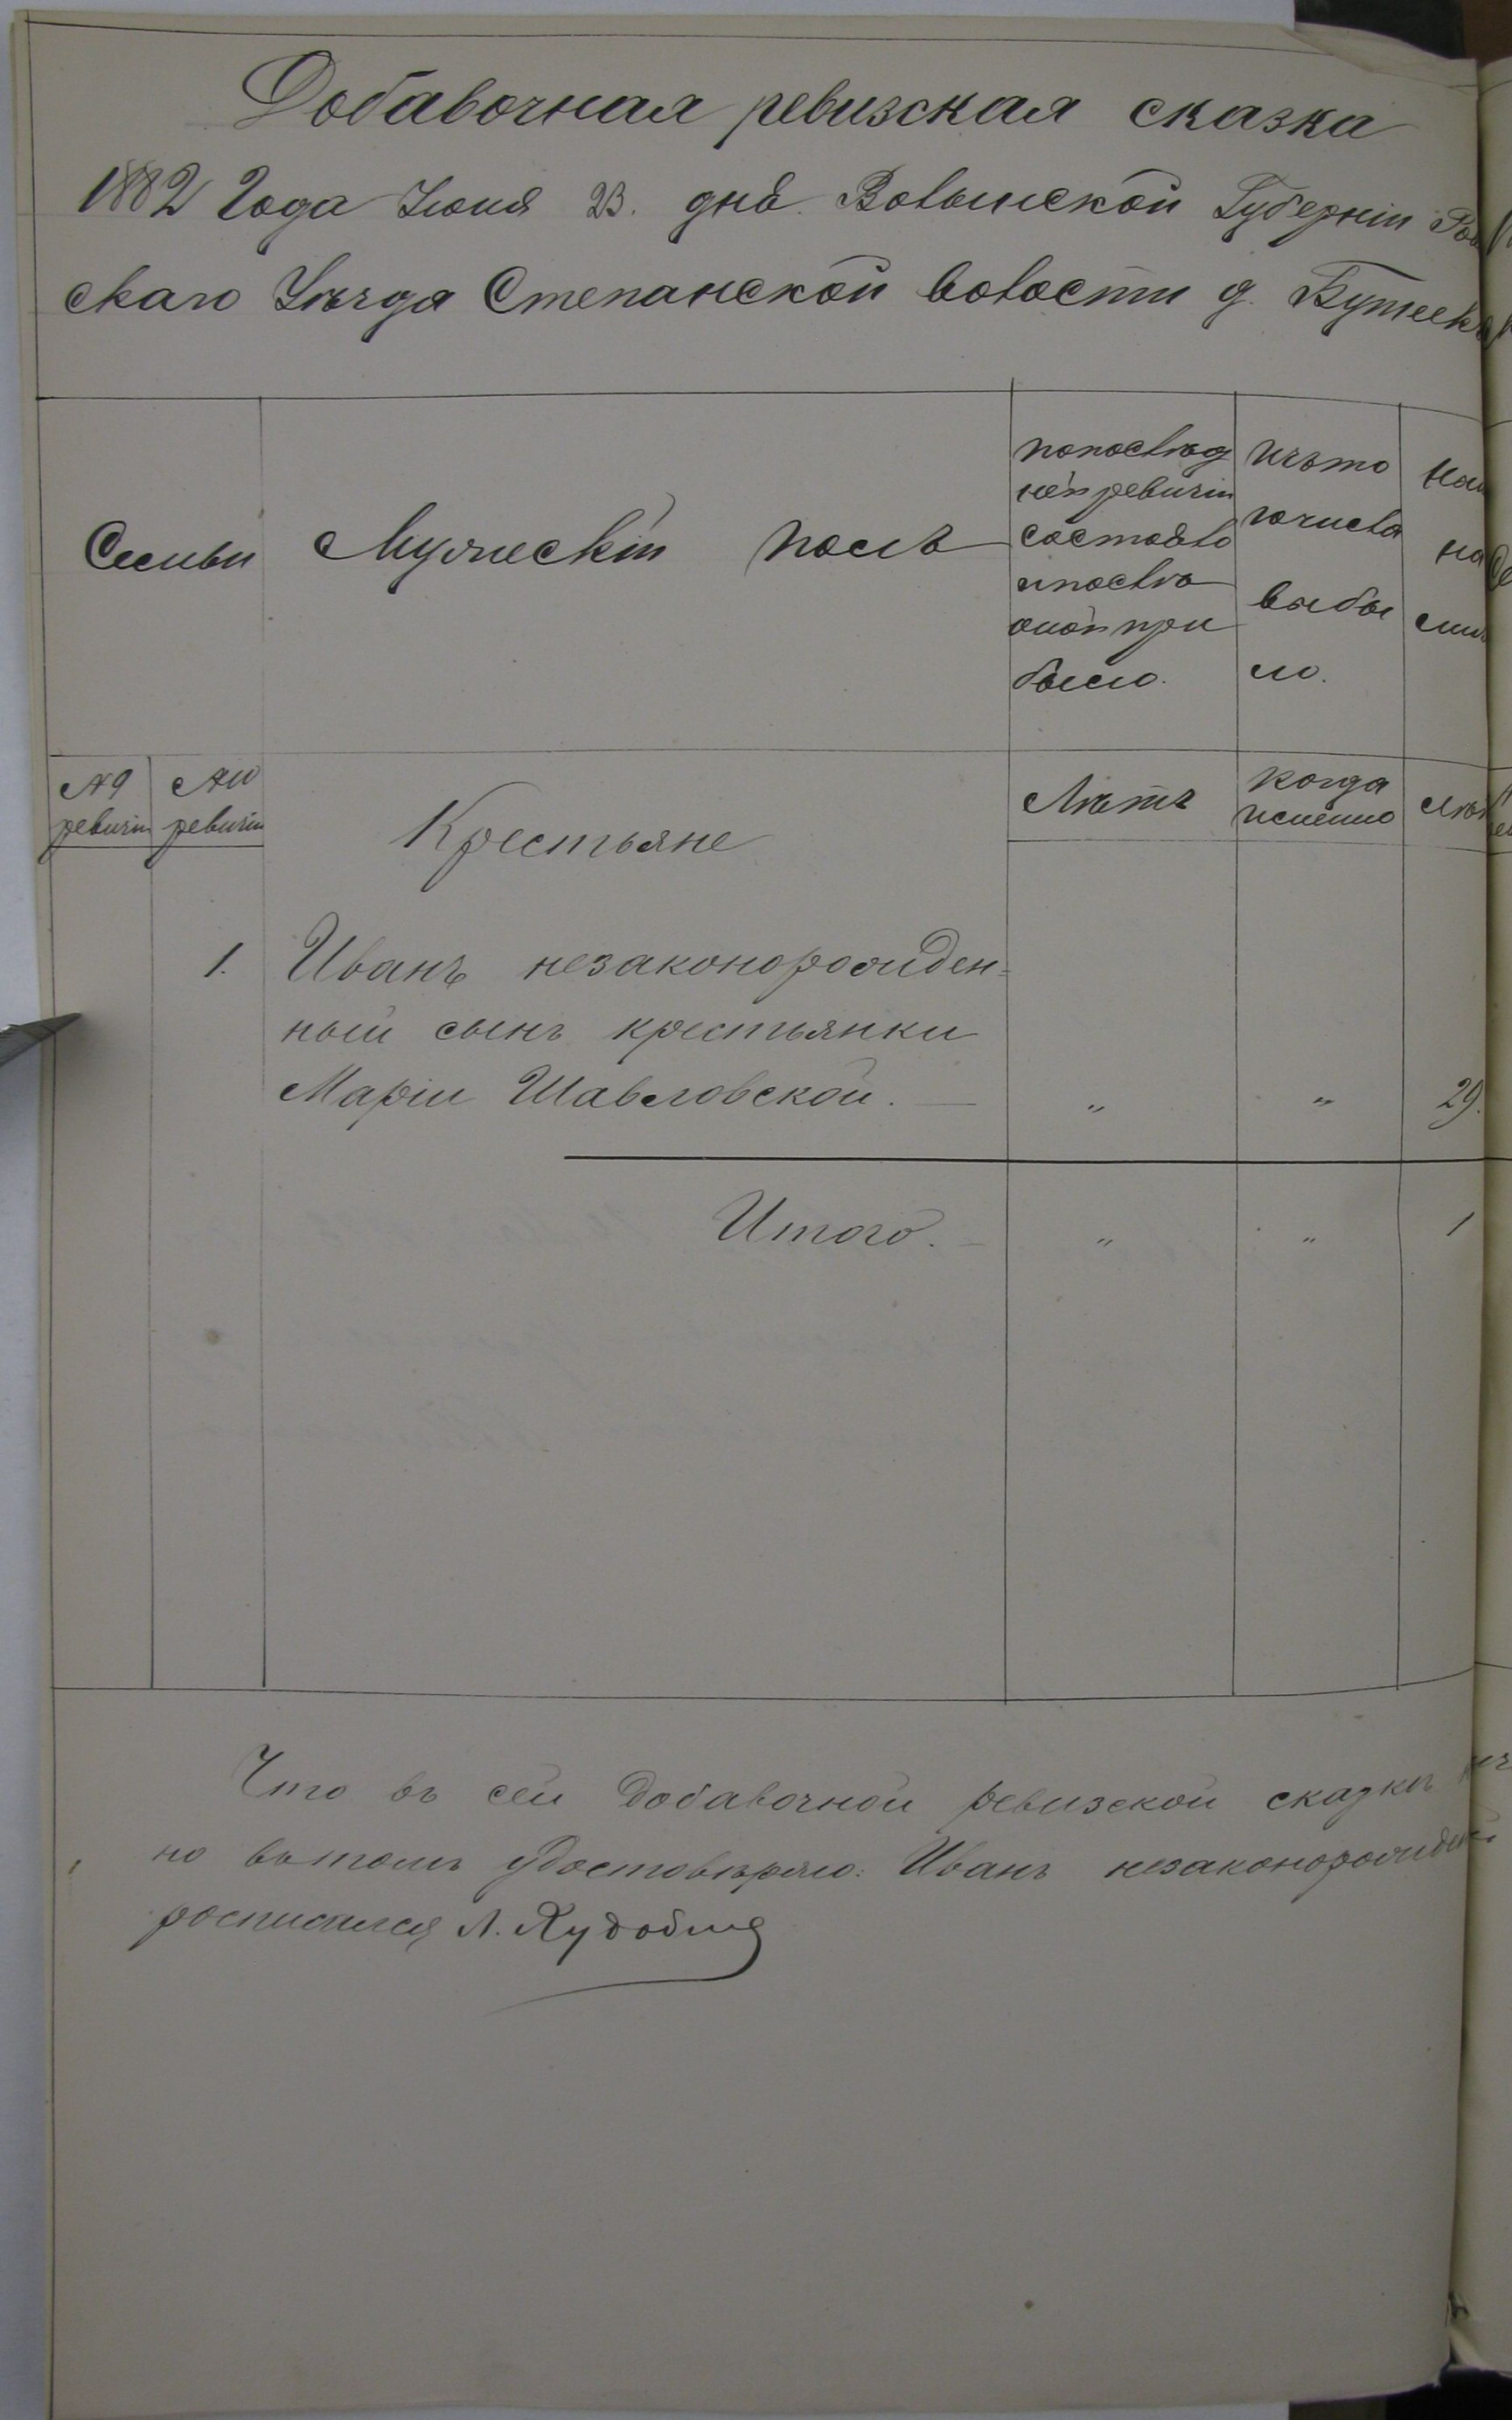 Добавочная ревизская сказка
1882 Года Июня 23. дня Волынской Губерніи Ров
скаго Уѣзда Степанской волости д. Бутейк
Семьи
Мужескій полъ
попослѣд
ней ревизіи
состояло
и послѣ
оной при
было.
Изъ то
го числа
выбы
ло.
На
№ 9 ревизіи
№ 10 ревизіи
Крестьяне
Лѣтъ
Когда
именно
Лѣт
1. Иванъ незаконорожден-
ный сынъ крестьянки
Маріи Шавловской. — " " 29.
Итого. — " " 1
Что въ сей добавочной ревизской сказкѣ
но вътомъ удостовѣряю: Иванъ незаконорожден
росписался Л. Худобя